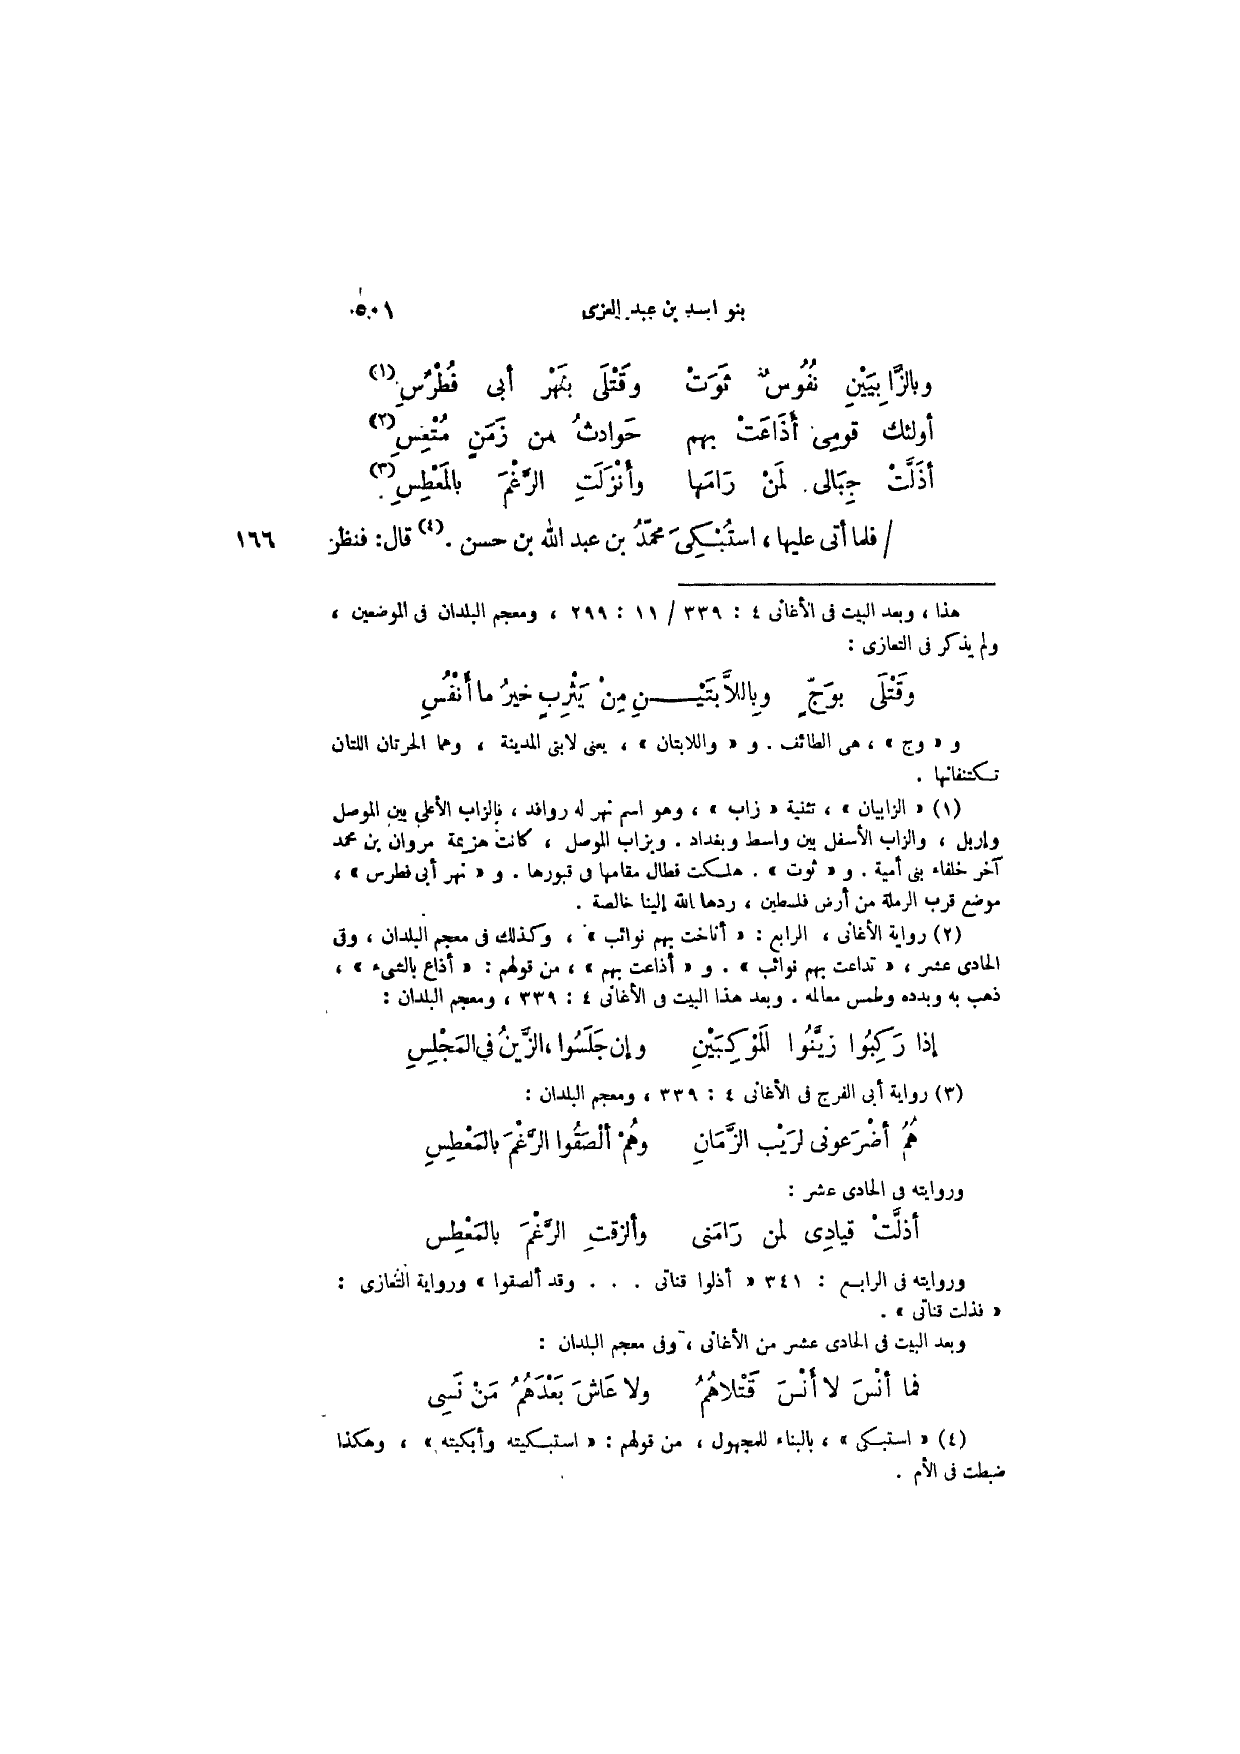 بنو اسد بن عبد العزى ٥٠١
وبالزَّابِيَيْنِ نُفُوسٌ ثَوَتْ وقَتْلَى بنَهْرِ أبى فُطْرُسِ (١)
أولئك قومِى أَذَاعَتْ بهم حَوادثُ من زَمَنٍ مُتْعِسِ (٢)
أذَلَّتْ حِبَالى لمَنْ رَامَها وأنْزَلَتِ الرَّغْمَ بالمَعْطِسِ (٣)
/ فلما أتى عليها ، استُبْكِىَ محمّدُ بن عبد الله بن حسن . (٤) قال : فنظر ١٦٦
هذا ، وبعد البيت فى الأغانى ٤ : ٣٣٩ / ١١ : ٢٩٩ ، ومعجم البلدان فى الموضعين ،
ولم يذكر فى التعازى :
وقَتْلَى بوَجٍّ وباللاَّبَتَيْـــنِ مِنْ يَثْرِبٍ خيرُ ما أَنْفُسِ
و « وج » ، هى الطائف . و « واللابتان » ، يعنى لابتى المدينة ، وهما الحرتان اللتان
تكتنفانها .
(١) « الزابيان » ، تثنية « زاب » ، وهو اسم نهر له روافد ، فالزاب الأعلى بين الموصل
وإربل ، والزاب الأسفل بين واسط وبغداد . وبزاب الموصل ، كانت هزيمة مروان بن محمد
آخر خلفاء بنى أمية . و « ثوت » . هلكت فطال مقامها فى قبورها . و « نهر أبى فطرس » ،
موضع قرب الرملة من أرض فلسطين ، ردها الله إلينا خالصة .
(٢) رواية الأغانى ، الرابع : « أناخت بهم نوائب » ، وكذلك فى معجم البلدان ، وفى
الحادى عشر ، « تداعت بهم نوائب » . و « أذاعت بهم » ، من قولهم : « أذاع بالشىء » ،
ذهب به وبدده وطمس معالمه . وبعد هذا البيت فى الأغانى ٤ : ٣٣٩ ، ومعجم البلدان :
إذا رَكِبُوا زيَّنُوا المَوْكِبَيْنِ وإن جَلَسُوا ، الزَّينُ فى المَجْلِسِ
(٣) رواية أبى الفرج فى الأغانى ٤ : ٣٣٩ ، ومعجم البلدان :
هُمُ أضْرَعونى لرَيْبِ الزَّمَانِ وهُمْ ألْصَقُوا الرَّغْمَ بالمَعْطِسِ
وروايته فى الحادى عشر :
أذلَّتْ قيادِى لمن رَامَنى وألزقتِ الرَّغْمَ بالمَعْطِسِ
وروايته فى الرابع : ٣٤١ « أذلوا قناتى . . . وقد ألصقوا » ورواية التعازى :
« فذلت قناتى » .
وبعد البيت فى الحادى عشر من الأغانى ، وفى معجم البلدان :
فما أنْسَ لا أَنْسَ قَتْلاهُمُ ولا عَاشَ بَعْدَهُمُ مَنْ نَسِى
(٤) « استبكى » ، بالبناء للمجهول ، من قولهم : « استبكيته وأبكيته » ، وهكذا
ضبطت فى الأم .